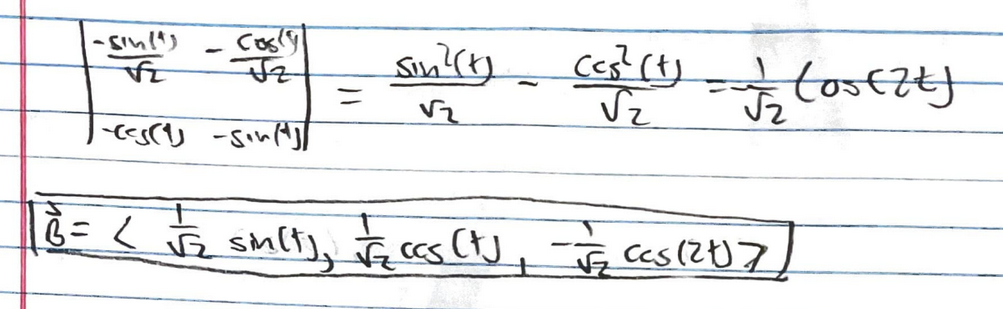 | -sin(t)/√2  - cos(t)/√2 |
| -cos(t)  -sin(t) | = sin²(t)/√2 - cos²(t)/√2 = -1/√2 cos(2t)
B⃗ = < 1/√2 sin(t), 1/√2 cos(t), -1/√2 cos(2t) >